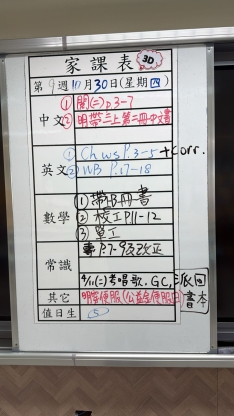 家課表 3D
第9週10月30日(星期四)
中文 ① 閱(二)p.3-7
② 明帶三上第二冊中文書
英文 ① Ch ws P.3-5 + corr.
② WB P.17-18
數學 ① 帶B冊書
② 校工P11-12
③ 單工
常識 P.7-9及改正
其它 4/11(二)考唱歌. GC, 派回書本
明穿便服(公益金便服日)
值日生 ⑤